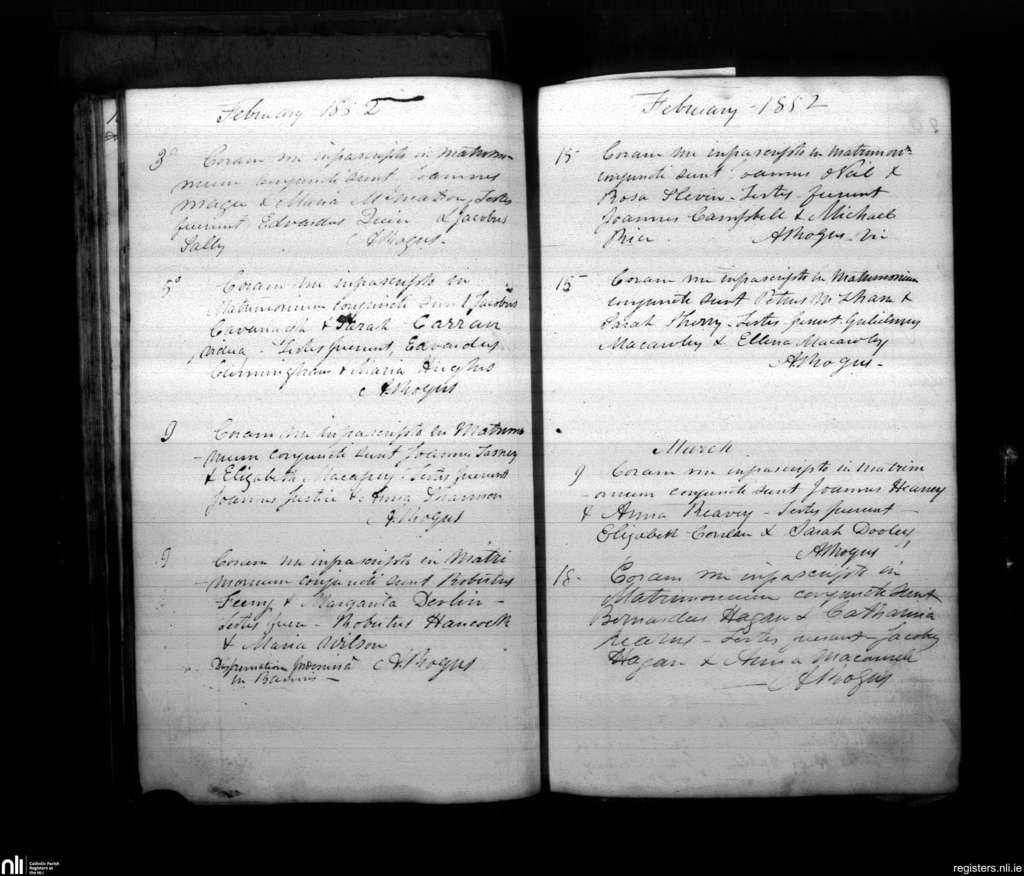 February 1852
3º Coram me infrascripto in Matrimo-
nium conjuncti sunt Joannes
Magee & Maria McMahon, Testes
fuerunt, Edvardus & Jacobus
Lally AShogus.
5º Coram me infrascripto in
Matrimonium conjuncti sunt Jacobus
Cavanagh & Sarah Carran
vidua - Testes fuerunt, Edvardus
Cunningham & Maria Hughs
AShogus
9 Coram me infrascripto in Matrimo
-nium conjuncti sunt Joannes
& Elizabeth - Testes fuerunt
Joannes Justice & Anna Shannon
AShogus
9 Coram me infrascripto in Matri
-monium conjuncti sunt Robertus
Feeny & Margarita Devlin -
Testes fuer - Robertus Hancock
& Maria Wilson
Dispensation
in Bannis - AShogus
February - 1852
15 Coram me infrascripto in matrimoni-
conjuncti sunt Joannes O'Neil &
Rosa Slevin - Testes fuerunt
Joannes Campbell & Michael
AShogus
15 Coram me infrascripto in Matrimonium
conjuncti sunt Petrus McShane &
Sarah Sherry - Testes fuerunt - Gulielmus
Macawley & Ellena Macawley
AShogus -
March
9 Coram me infrascripto in matrim
-onium conjuncti sunt Joannes Heaney
& Anna Reavey - Testes fuerunt -
Elizabeth Conlan & Sarah Dooley
AShogus
18- Coram me infrascripto in
Matrimonium conjuncti sunt
Bernardus Hagan & Catharina
Kearns - Testes fuerunt - Jacobus
Hagan & Anna Maconnell
AShogus
nli
Catholic Parish
Registers at
the NLI
registers.nli.ie